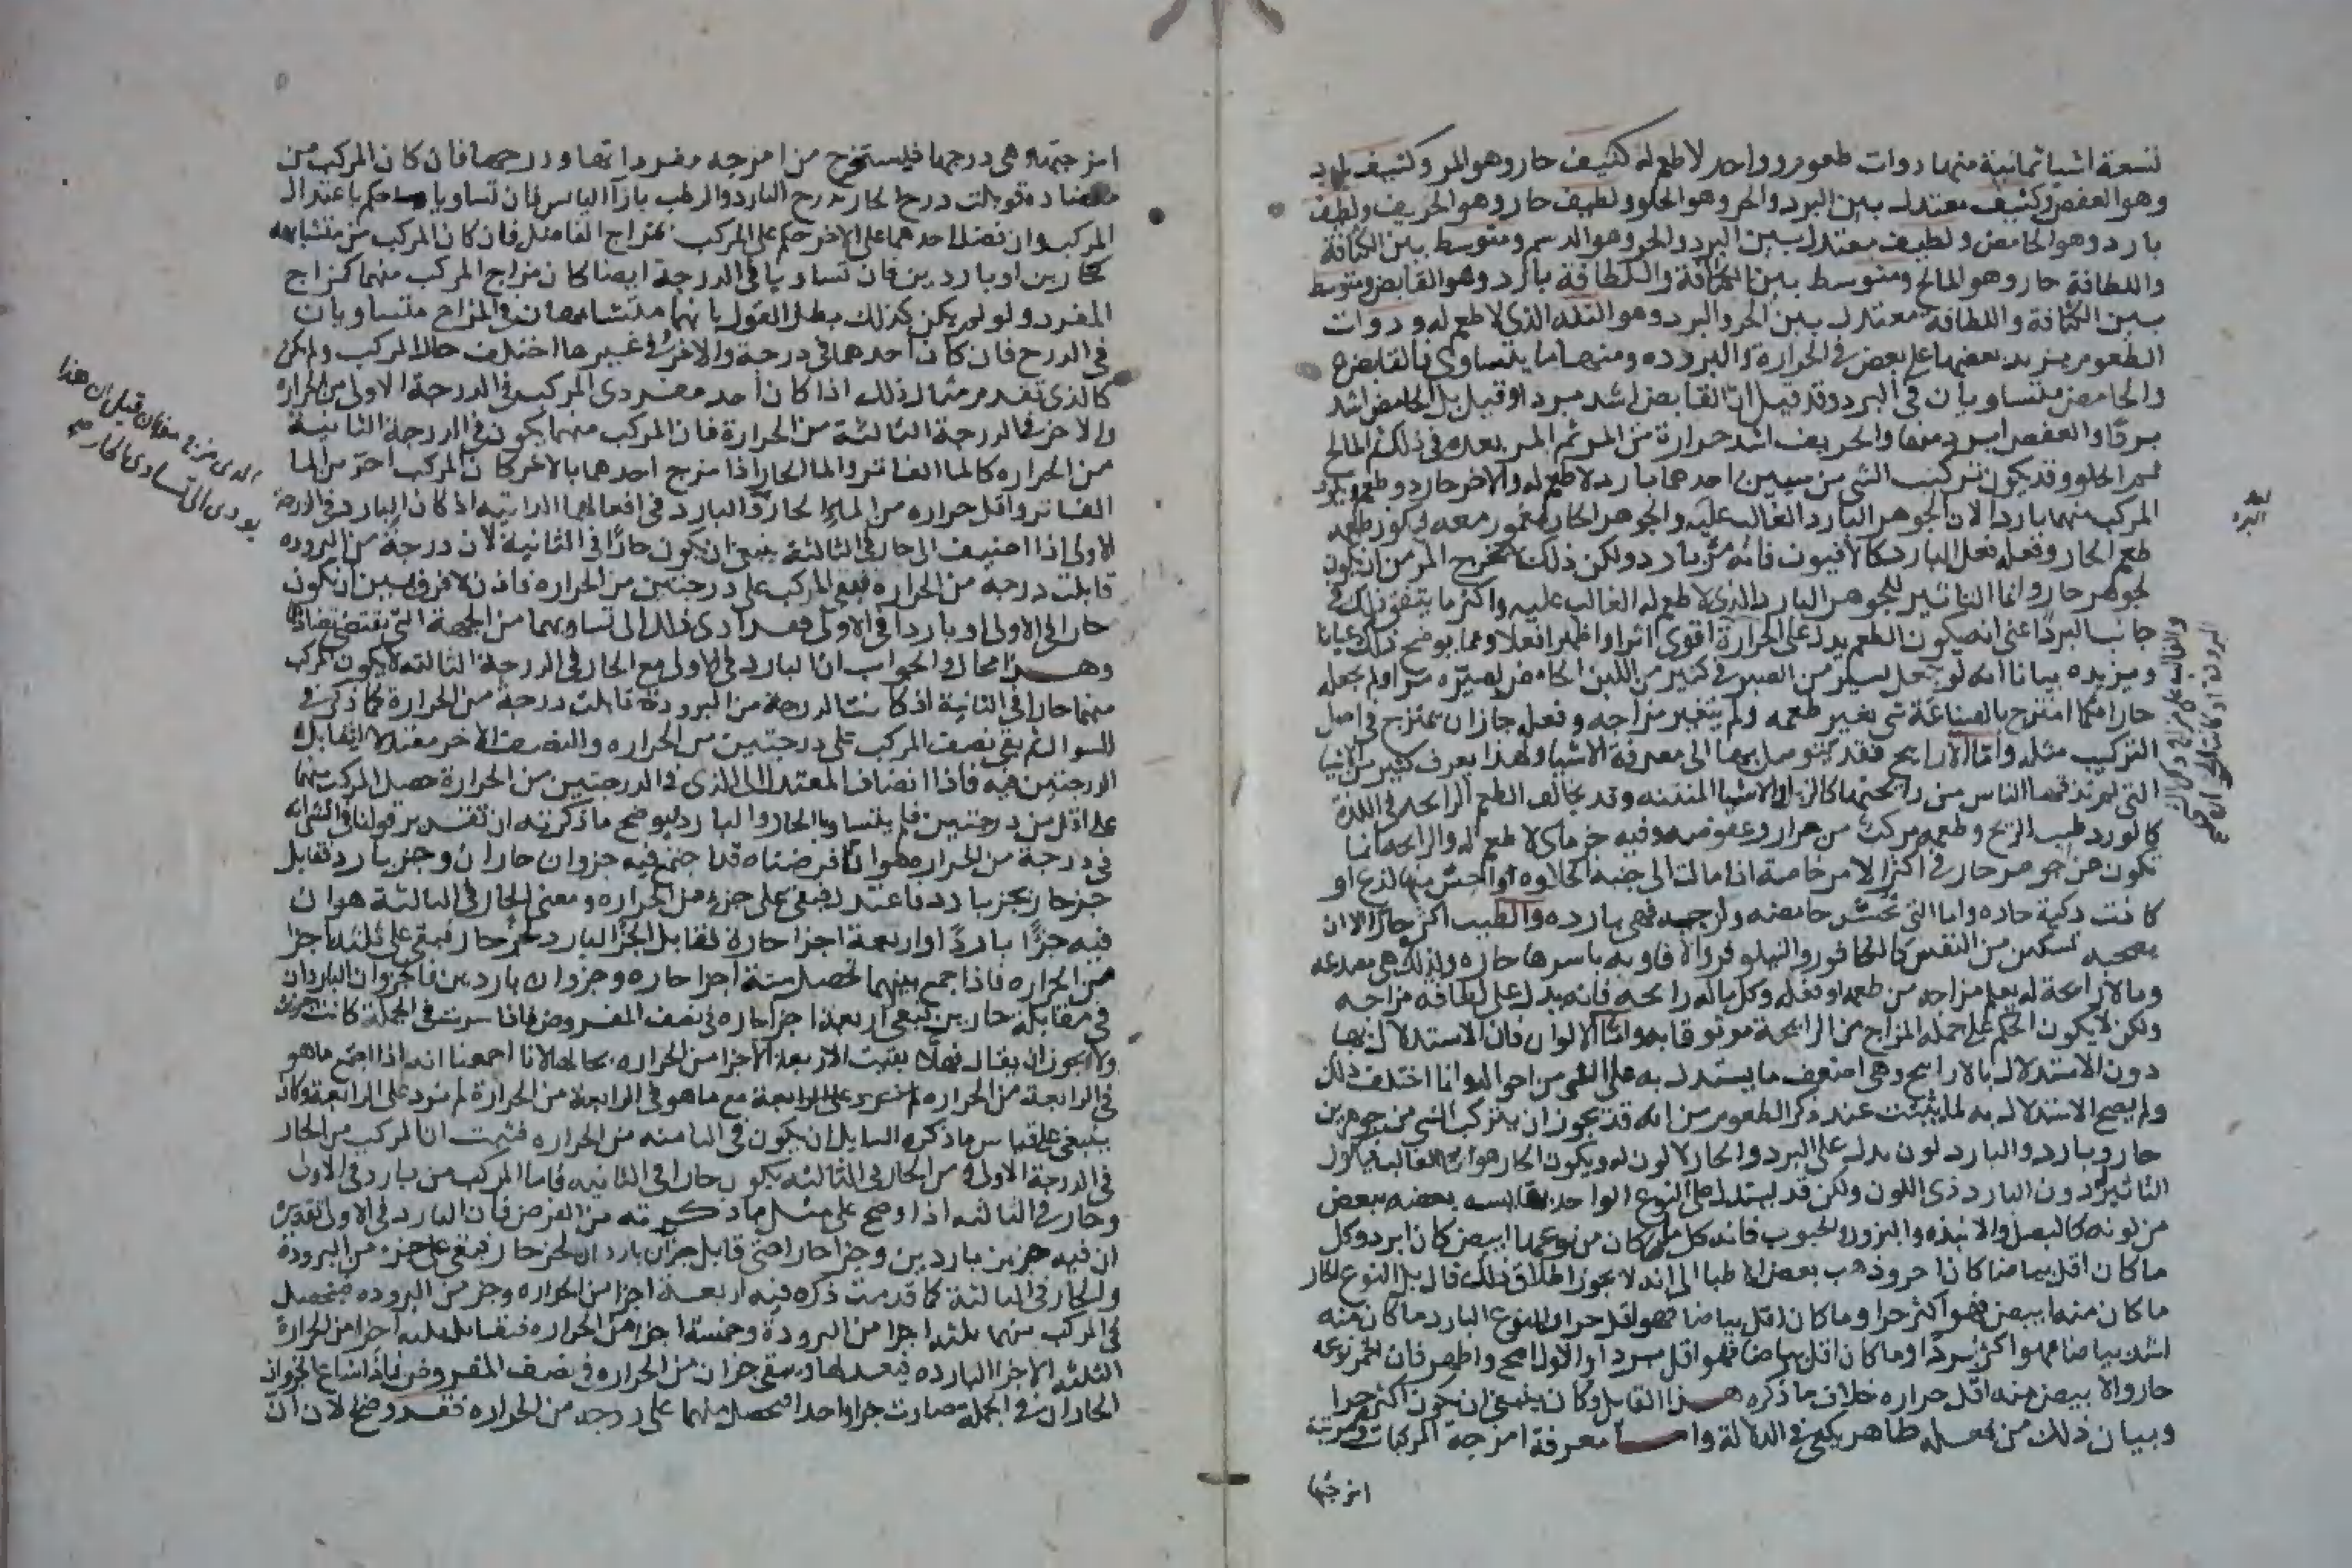 لتسعة اشيا ثمانية منها ذوات طعوم وواحد لا طعم له كثيف حار وهو المر وكثيف بارد
وهو العفص وكثيف معتدل بين البرد والحر وهو الحلو ولطيف حار وهو الحريف ولطيف
بارد وهو الحامض ولطيف معتدل بين البرد والحر وهو الدسم ومتوسط بين الكثافة
واللطافة حار وهو المالح ومتوسط بين الكثافة واللطافة بارد وهو القابض ومتوسط
بين الكثافة واللطافة معتدل بين الحر والبرد وهو التفه الذي لا طعم له وذوات
الطعوم يزيد بعضها على بعض في الحرارة والبرودة ومنها ما يتساوى فالقابض
والحامض متساويان في البرد وقد قيل ان القابض اشد مبردا وقيل بل الحامض اشد
بردًا والعفص ابرد منهما والحريف اشد حرارة من المر ثم المر بعده في ذلك ثم المالح
ثم الحلو وقد يكون تركيب الشي من شيين احدهما بارد لا طعم له والاخر حار ذو طعم ويكون
المركب منهما باردا لان الجوهر البارد الغالب عليه والجوهر الحار مغمور معه فيكون طعمه
طعم الحار وفعله فعل البارد كالافيون فانه مر بارد ولكن ذلك لا يخرج المر من ان يكون
لجوهر حار وانما التاثير للجوهر البارد الذي لا طعم له الغالب عليه واكثر ما يتفق ذلك في
جانب البرد اعني انه يكون الطعم يدل على الحرارة اقوى اثرا واظهر انفعلا ومما يوضح ذلك عيانا
ويزيده بيانا انه لو جعل يسير من الصبر في كثير من اللبن الحامض لصيره مرا ولم يجعله
حارا فكما امتزج بالصناعة شي بغير طعمه ولم يتغير مزاجه وفعله جاز ان يمتزج في اصل
التركيب مثله واما الارايح فقد يتوصل بها الى معرفة الاشيا ولهذا يعرف كثير من الاشيا
التي لم يذقها الناس من رايحتها كالزبل والاشيا المنتنه وقد يخالف الطعم الرايحه في اللذة
كالورد طيب الريح وطعمه مركب من مرار وعفوصه وفيه جزماى لا طعم له والرايحه انما
تكون من جوهر حار في اكثر الامر خاصة اذا مالت الى جنبة الحلاوه او احس منها لذع او
كانت ذكية حاده واما التي تحس حامضه ولزجه فهي بارده والطيب اكثر حار الا ان
يصحبه تسكين من النفس كالكافور والنيلوفر والافاويه باسرها حاره ولذلك هي مصدعه
وما لا رايحة له يعلم مزاجه من طعمه او فعله وكل ما له رايحه فانه يدل على لطافة مزاجه
ولكن لا يكون الحكم على جملة المزاج من الرايحة موثوقا به واما الالوان فان الاستدلال بها
دون الاستدلال بالارايح وهي اضعف ما يستدل به على الشي من احواله وانما اختلف ذلك
ولم يصح الاستدلال به لما يثبت عند ذكر الطعوم من انه قد يجوز ان يتركب الشي من جوهرين
حار وبارد والبارد لون يدل على البرد والحار لا لون له ويكون الحار هو الغالب فيكون
التاثير دون البارد ذي اللون ولكن قد يستدل على النوع الواحد بقايسه بعضه ببعض
من لونه كالبصل والانبذه والبزور والحبوب فانه كل ما كان من نوعها ابيض كان ابرد وكل
ما كان اقل بياضا كان احر وذهب بعض الاطبا الى انه لا يجوز اطلاق ذلك قال بل النوع الحار
ما كان منه ابيض فهو اكثر حرا وما كان اقل بياضا فهو اقل حرا والنوع البارد ما كان منه
اشد بياضا فهو اكثر بردًا وما كان اقل بياضا فهو اقل بردا والاول اصح واظهر فان الخمر نوعه
حار والابيض منه اقل حراره خلاف ما ذكره هذا القايل وكان ينبغي ان يكون اكثر حرا
وبيان ذلك من فعله ظاهر يكفي في الدلالة واما معرفة امزجة المركبات
امزجتها
امزجتها وهي درجها فليستخرج من امزجه مفرداتها ودرجها فان كان المركب من
متضاده قوبلت درج الحار بدرج البارد والرطب بازا اليابس فان تساويا حكم باعتدال
المركب وان فضل احدهما على الاخر حكم على المركب بمزاج الفاضل فان كان المركب من متشابهه
كحارين او باردين فان تساويا في الدرجة ايضا كان مزاج المركب منهما كمزاج
المفرد ولو لم يكن كذلك بطل القول بانهما متشابهان والمزاج متساويان
في الدرج فان كان احدهما في درجة والاخر في غيرها اختلف حال المركب ولم يكن
كالذي تقدم مثال ذلك اذا كان احد مفردى المركب في الدرجة الاولى من الحراره
والاخر في الدرجة الثالثة من الحرارة فان المركب منهما يكون في الدرجة الثانية
من الحراره كالما الفاتر والما الحار اذا مزج احدهما بالاخر كان المركب احر من الما
الفاتر واقل حراره من الما الحار والبارد في افعالهما الذاتيه اذ كان البارد في الدرجة
الاولى اذا اضيف الى حار في الثالثة ينبغي ان يكون حارًا في الثانية لان درجة من البروده
قابلت درجة من الحراره فبقى المركب على درجتين من الحراره فاذن لا فرق بين ان يكون
حارا في الاولى او باردا في الاولى فقد ادى ذلك الى تساويهما من الجهة التي يقتضى تضادا
وهذا محال والجواب ان البارد في الاولى مع الحار في الدرجة الثالثه لا يكون المركب
منهما حارا في الثانية اذ كانت الدرجة من البرودة قابلت درجة من الحرارة كما ذكر في
السوال ثم بقى نصف المركب على درجتين من الحراره والنصف الاخر معتدلا لتقابل
الدرجتين فيه فاذا انضاف المعتدل الى الذي في الدرجتين من الحرارة حصل المركب منهما
على اقل من درجتين فلم يتساويا الحار والبارد يوضح ما ذكرته ان تقدير قولنا في الشي انه
في درجة من الحراره هو انا فرضناه قد اجتمع فيه جزوان حاران وجز بارد تقابل
جز حار بجز بارد فاعتدل فبقى على جزء من الحراره ومعنى الحار في الثالثة هو ان
فيه جزًا باردًا واربعة اجزا حارة تقابل الجزا البارد بجز حار فبقى على ثلثة اجزا
من الحراره فاذا جمع بينهما تحصل ستة اجزا حاره وجزوان باردين فالجزوان الباردان
في مقابلة حارين تبقى اربعة اجزا حاره في نصف المفروض فاذا سرت في الجملة كانت جزوين
ولا يجوز ان يقال فهلا بقيت الاربعة الاجزا من الحراره بحالها لانا اجمعنا انه اذا اجتمع ما هو
في الرابعة من الحراره مع ما هو في الرابعة من الحرارة لم يزد على الرابعة وكان
ينبغي على قياس ما ذكره السايل ان يكون في الثامنه من الحراره فثبت ان المركب من الحار
في الدرجة الاولى و من الحار في الثالثه يكون حارا في الثانيه فاما المركب من بارد في الاولى
وحار في الثالثه اذا وضح على مثل ما ذكرته من الفرض فان البارد في الاولى تقديره
ان فيه جزين باردين وجزا حارا حتى قابل جزان باردان بجز حار فبقى على جزء من البرودة
والحار في الثالثة كما قدمت ذكره فيه اربعة اجزا من الحراره وجز من البروده فتحصل
في المركب منهما ثلثه اجزا من البرودة وخمسة اجزا من الحراره فتقابل ثلثه اجزا من الحرارة
الثلثه الاجزا البارده فيعدلها ويبقى جزان من الحراره في نصف المفروض فاذا شاع الجزوان
الحاران في الجملة صارت جزا واحدا فتحصل منهما على درجه من الحراره فقد وضح الان ان